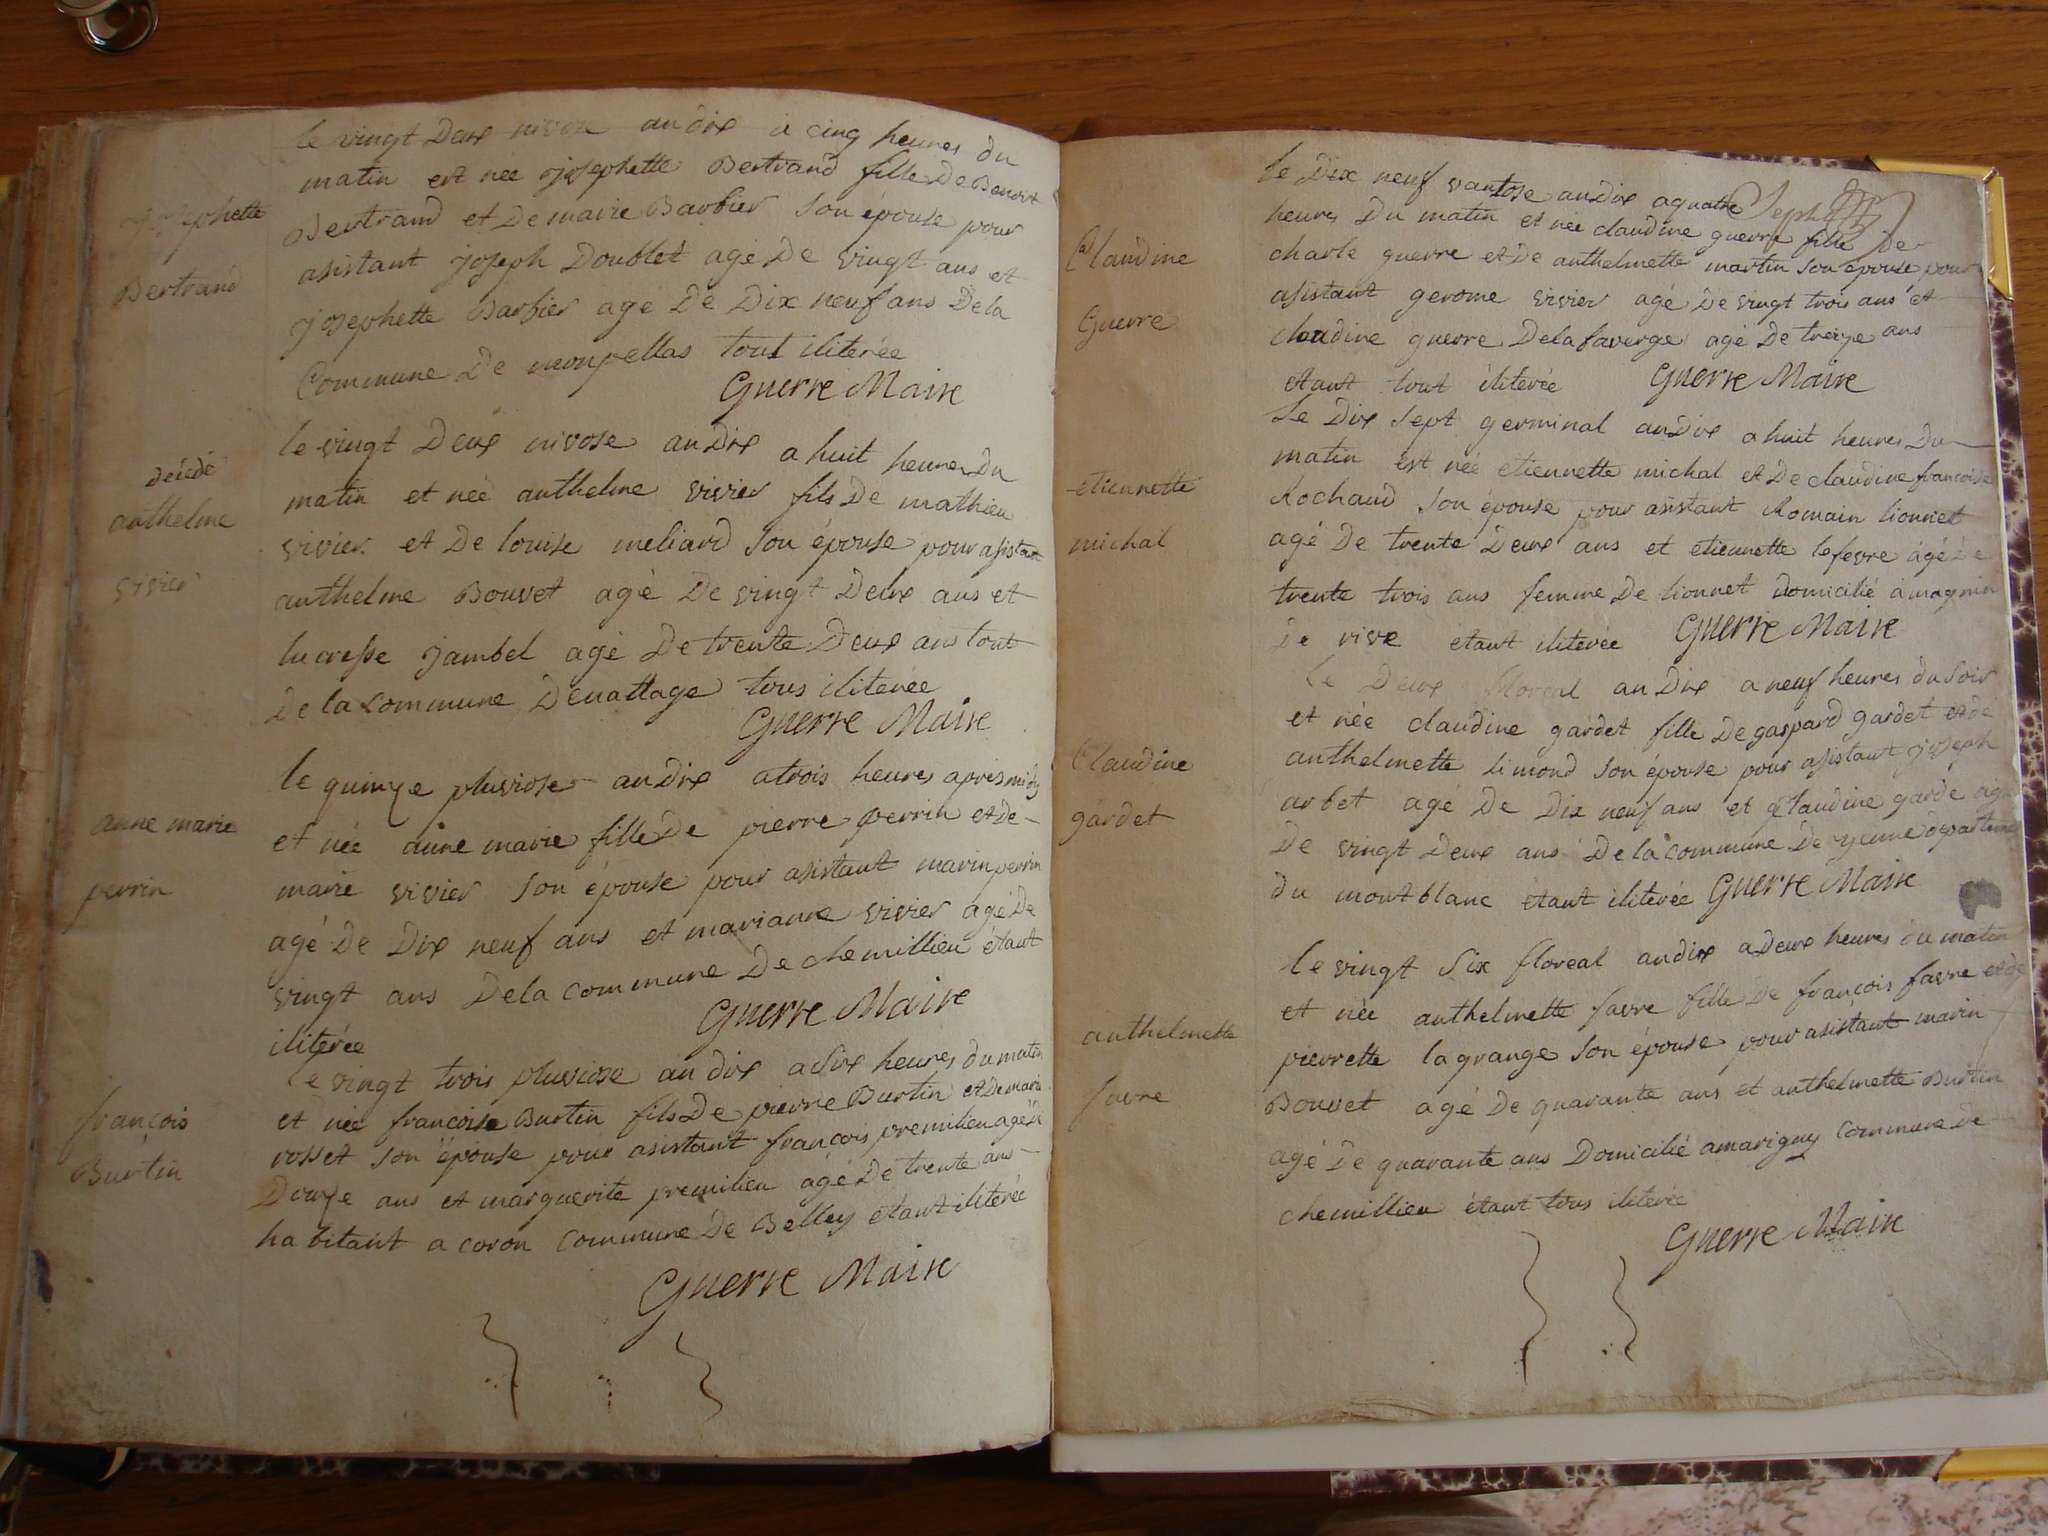 josephette
Bertrand
le vingt Deux nivose an dix à cinq heures du
matin est née josephette Bertrand fille De Benoit
Bertrand et De marie Barbier son épouse pour
asistant joseph Doublet agé De vingt ans et
josephette Barbier agé De Dix neuf ans De la
Commune De tout iliterée
Guerre Maire
décédé
anthelme
vivier
le vingt Deux nivose an Dix a huit heures Du
matin et neé anthelme vivier fils De mathieu
vivier et De louise meliard son épouse pour asistant
anthelme Bouvet agé De vingt Deux ans et
lucresse jambel agé De trente Deux ans tout
De la commune Denattage tous iliterée
Guerre Maire
anne marie
perrin
le quinze pluviose an Dix a trois heures après midy
et née anne marie fille De pierre perrin et de
marie vivier son épouse pour asistant marin perrin
agé De Dix neuf ans et marianne vivier agé De
vingt ans De la commune De chemillieu étant
iliterée
Guerre Maire
françois
Burtin
le vingt trois pluviose an dix a Six heures du matin
et neé françoise Burtin fils De pierre Burtin et De marie
rosset son épouse pour asistant françois premilieu agé de
Douze ans et marguerite premilieu agé De trente ans
habitant a coron commune De Belley étant iliterée
Guerre Maire
Claudine
Guerre
le Dix neuf vantose an Dix a quatre
heures Du matin et née claudine guerre fille De
charle guerre et De anthelmette martin son épouse pour
asistant gerome vivier agé De vingt trois ans et
claudine guerre De la faverge agé De treize ans
etant tout iliterée Guerre Maire
etiennette
michal
Le Dix sept germinal an Dix a huit heures Du
matin est née etiennette michal et De claudine françoise
Rochaud son épouse pour asistant Romain lionnet
agé De trente Deux ans et etiennette lefevre agé De
trente trois ans femme De lionnet Domicilié à magnin
De rive etant iliterée Guerre Maire
Claudine
gardet
le Deux floreal an Dix a neuf heures du soir
et née claudine gardet fille De gaspard gardet et de
anthelmette limond son épouse pour asistant joseph
arbet agé De Dix neuf ans et claudine gardé agé
De vingt Deux ans De la commune De yenne departement
du mont blanc étant iliterée Guerre Maire
anthelmette
favre
le vingt six floreal an dix a Deux heures du matin
et née anthelmette favre fille De françois favre et de
pierrette lagrange son épouse pour asistant marin
Bouvet agé De quarante ans et anthelmette Burtin
agé De quarante ans Domicilié a marigny commune de
chemillieu étant tous iliterée
Guerre Maire